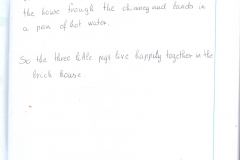 the house frough the chimney and lands in
a pan of hot water.
So the three little pigs live happily together in the
brick house.